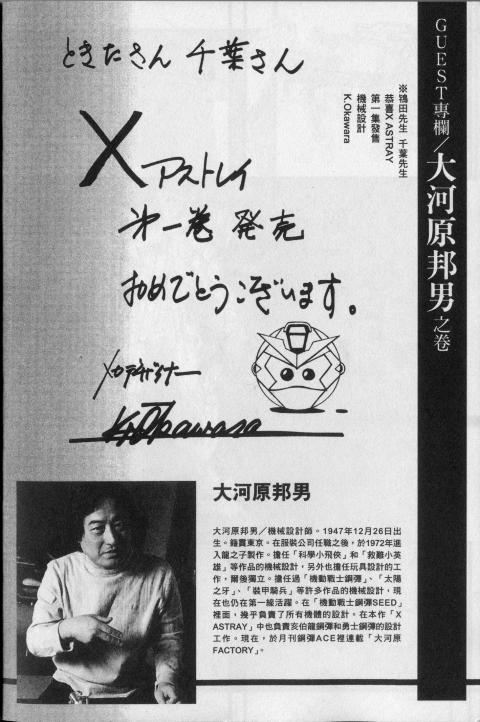 GUEST專欄／大河原邦男之卷
※鴇田先生 千葉先生
恭喜X ASTRAY
第一集發售
機械設計
K.Okawara
ときたさん 千葉さん
X アストレイ
第一巻 発売
おめでとうございます。
メカデザイナー
K.Okawara
大河原邦男
大河原邦男／機械設計師。1947年12月26日出
生。籍貫東京。在服裝公司任職之後，於1972年進
入龍之子製作。擔任「科學小飛俠」和「救難小英
雄」等作品的機械設計，另外也擔任玩具設計的工
作，爾後獨立。擔任過「機動戰士鋼彈」、「太陽
之牙」、「裝甲騎兵」等許多作品的機械設計，現
在也仍在第一線活躍。在「機動戰士鋼彈SEED」
裡面，幾乎負責了所有機體的設計。在本作「X
ASTRAY」中也負責亥伯龍鋼彈和勇士鋼彈的設計
工作。現在，於月刊鋼彈ACE裡連載「大河原
FACTORY」。